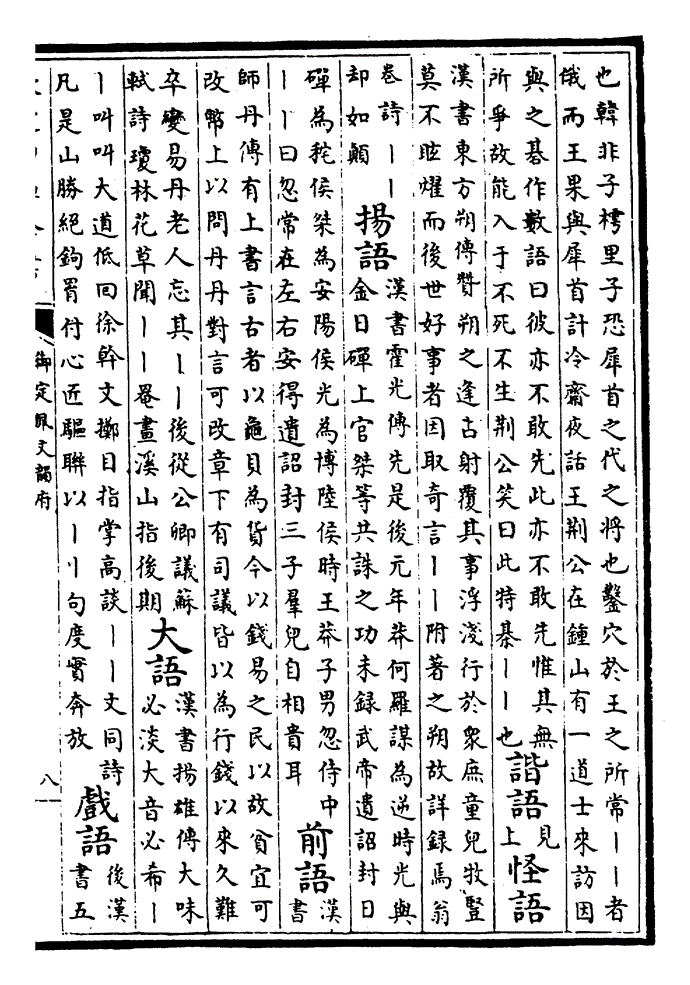 也韓非子樗里子恐犀首之代之将也鑿穴於王之所常丨丨者
俄而王果與犀首計冷齋夜話王荆公在鍾山有一道士來訪因
與之碁作數語曰彼亦不敢先此亦不敢先惟其無
所爭故能入于不死不生荆公笑曰此特碁丨丨也
諧語見上
怪語
漢書東方朔傳贊朔之逢占射覆其事浮淺行於衆庶童兒牧豎
莫不眩耀而後世好事者因取奇言丨丨附著之朔故詳録焉翁
卷詩丨丨
却如顛
揚語
漢書霍光傳先是後元年莽何羅謀為逆時光與
金日磾上官桀等共誅之功未録武帝遺詔封日
磾為秺侯桀為安陽侯光為博陸侯時王莽子男忽侍中
丨丨曰忽常在左右安得遺詔封三子羣兒自相貴耳
前語
漢書
師丹傳有上書言古者以龜貝為貨今以錢易之民以故貧宜可
改幣上以問丹丹對言可改章下有司議皆以為行錢以來久難
卒變易丹老人忘其丨丨後從公卿議蘇
軾詩瓊林花草聞丨丨罨畫溪山指後期
大語
漢書揚雄傳大味
必淡大音必希丨
丨叫叫大道低回徐幹文擲目指掌高談丨丨文同詩
凡是山勝絕鉤罥付心近驅聯以丨丨句度實奔放
戲語
後漢
書五
御定佩文韻府
八